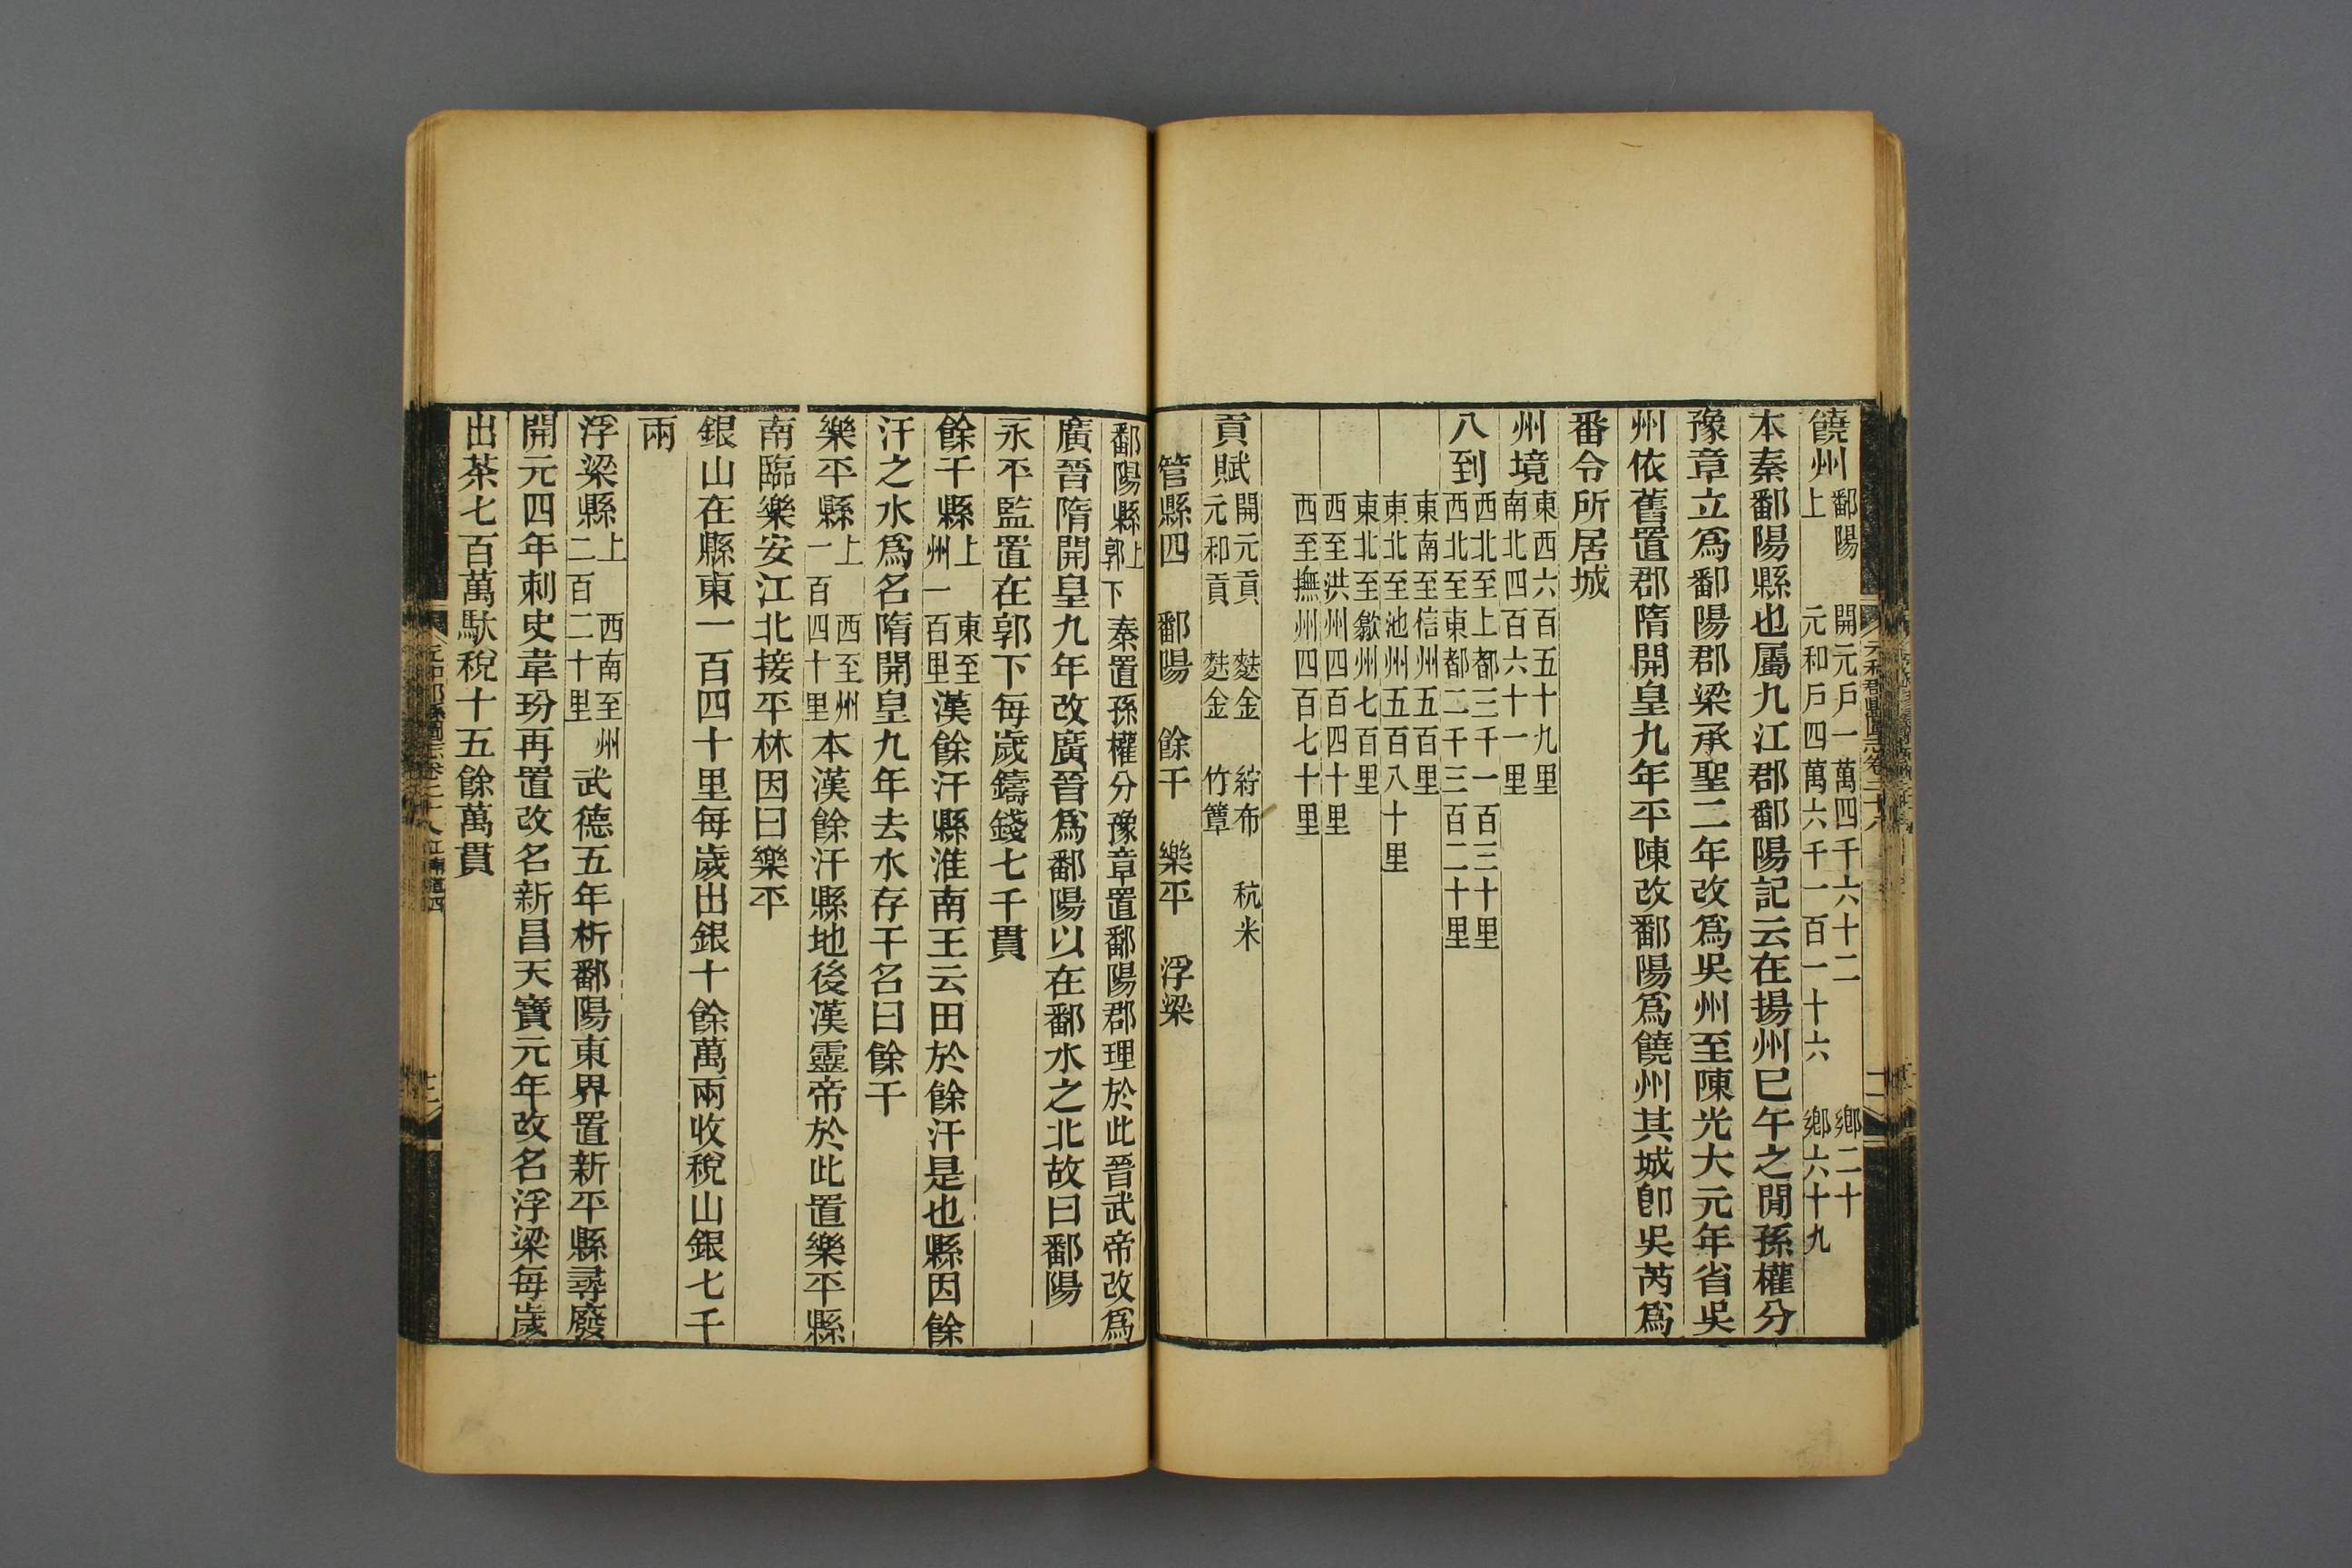 饒州 鄱陽 上 開元戶一萬四千六十二 鄉二十 元和戶四萬六千一百一十六 鄉六十九
本秦鄱陽縣也屬九江郡鄱陽記云在揚州巳午之閒孫權分
豫章立爲鄱陽郡梁承聖二年改爲吳州至陳光大元年省吳
州依舊置郡隋開皇九年平陳改鄱陽爲饒州其城卽吳芮爲
番令所居城
州境 東西六百五十九里 南北四百六十一里
八到 西北至上都三千一百三十里 西北至東都二千三百二十里
東南至信州五百里 東北至池州五百八十里
東北至歙州七百里 西至洪州四百四十里
西至撫州四百七十里
貢賦 開元貢 麩金 紵布 秔米 元和貢 麩金 竹簟
管縣四 鄱陽 餘干 樂平 浮梁
鄱陽縣 上 郭下 秦置孫權分豫章置鄱陽郡理於此晉武帝改爲
廣晉隋開皇九年改廣晉爲鄱陽以在鄱水之北故曰鄱陽
永平監置在郭下每歲鑄錢七千貫
餘干縣 上 東至州一百里 漢餘汗縣淮南王云田於餘汗是也縣因餘
汗之水爲名隋開皇九年去水存干名曰餘干
樂平縣 上 西至州一百四十里 本漢餘汗縣地後漢靈帝於此置樂平縣
南臨樂安江北接平林因曰樂平
銀山在縣東一百四十里每歲出銀十餘萬兩收稅山銀七千
兩
浮梁縣 上 西南至州二百二十里 武德五年析鄱陽東界置新平縣尋廢
開元四年刺史韋玢再置改名新昌天寶元年改名浮梁每歲
出茶七百萬馱稅十五餘萬貫